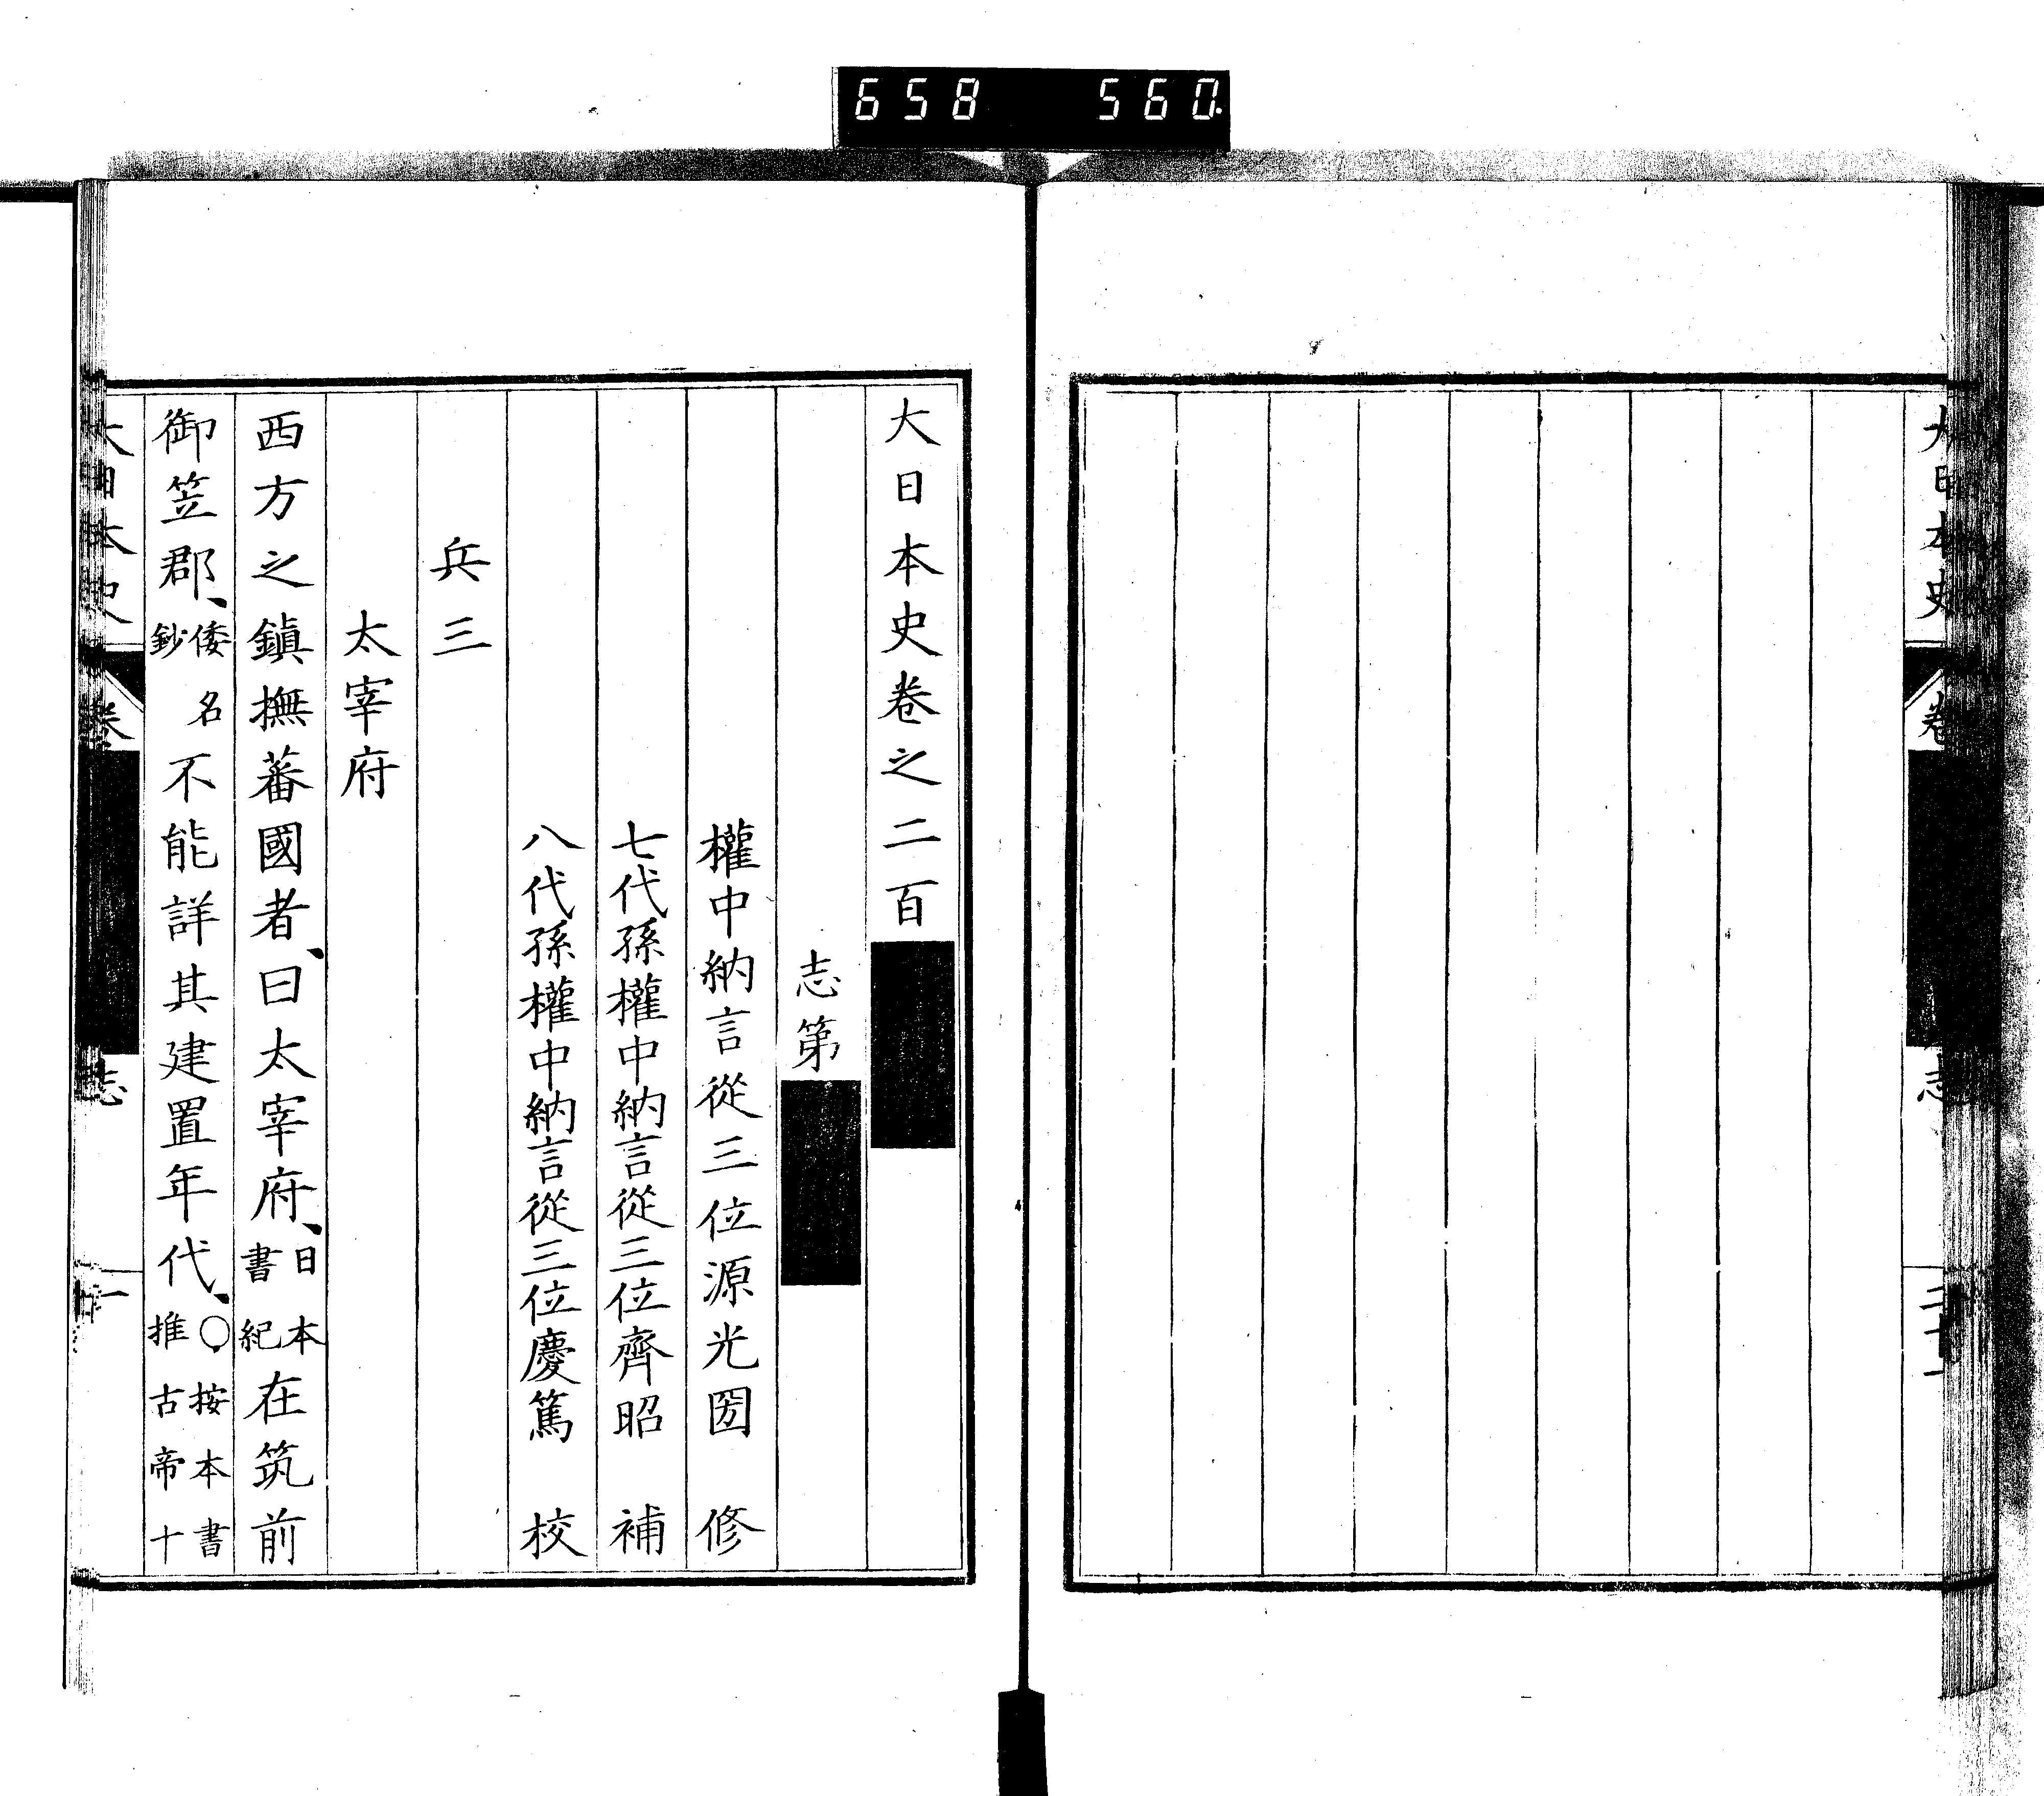 658 560.
大日本史
志
大日本史卷之二百
志第
權中納言從三位源光圀 修
七代孫權中納言從三位齊昭 補
八代孫權中納言從三位慶篤 校
兵三
太宰府
西方之鎮撫蕃國者、曰太宰府、日本書紀在筑前
御笠郡、倭名鈔不能詳其建置年代、○按本書推古帝十
大日本史
卷
志
一